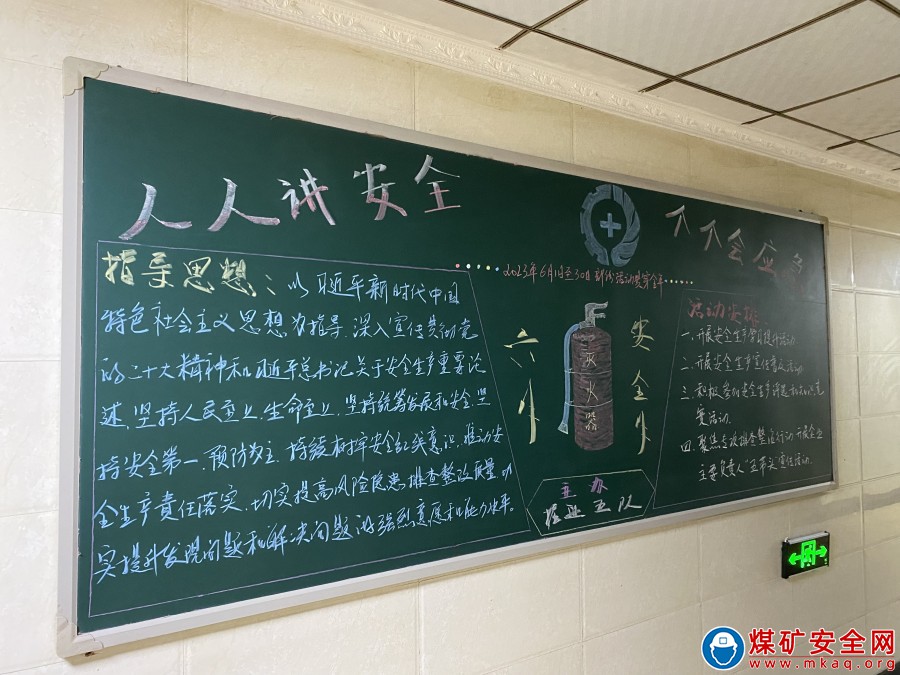 人人讲安全
个个会应急
指导思想：以习近平新时代中国
特色社会主义思想为指导，深入宣传贯彻党
的二十大精神和习近平总书记关于安全生产重要论
述，坚持人民至上、生命至上，坚持统筹发展和安全，坚
持安全第一、预防为主，持续树牢安全红线意识，推动安
全生产责任落实，切实提高风险隐患排查整改质量，切
实提升发现问题和解决问题的强烈意愿和能力水平。
2023年6月1日至30日
六月
安全月
灭火器
主办
掘进五队
活动安排
一、开展安全生产
二、开展安全生产宣传
三、积极参加安全生产
活动。
四、聚焦专项排查整治行动开展企业
主要负责人“五带头”宣传活动。
煤矿安全网
www.mkaq.org